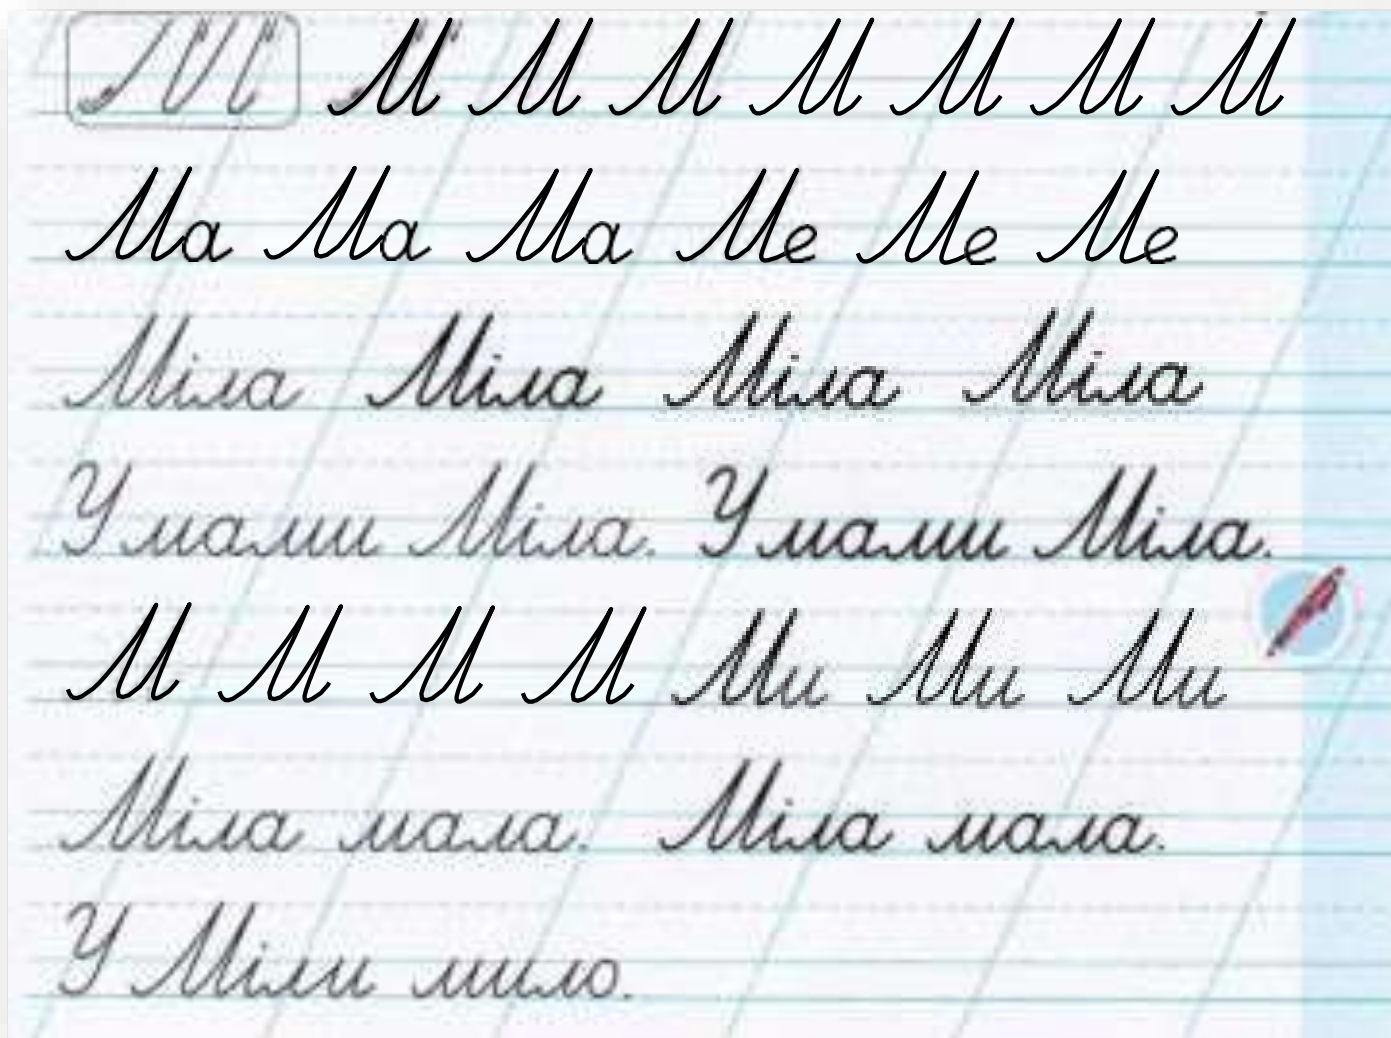 М М М М М М М М
Ма Ма Ма Ме Ме Ме
Міла Міла Міла Міла
У мами Міла. У мами Міла.
М М М М Ми Ми Ми
Міла мала. Міла мала.
У Міли мило.